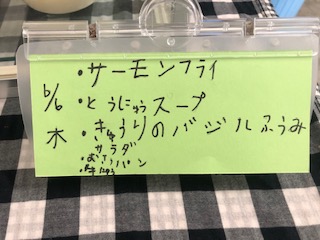 ・サーモンフライ
6/6
・とうにゅうスープ
木
・きゅうりのバジルふうみ
サラダ
・おさつパン